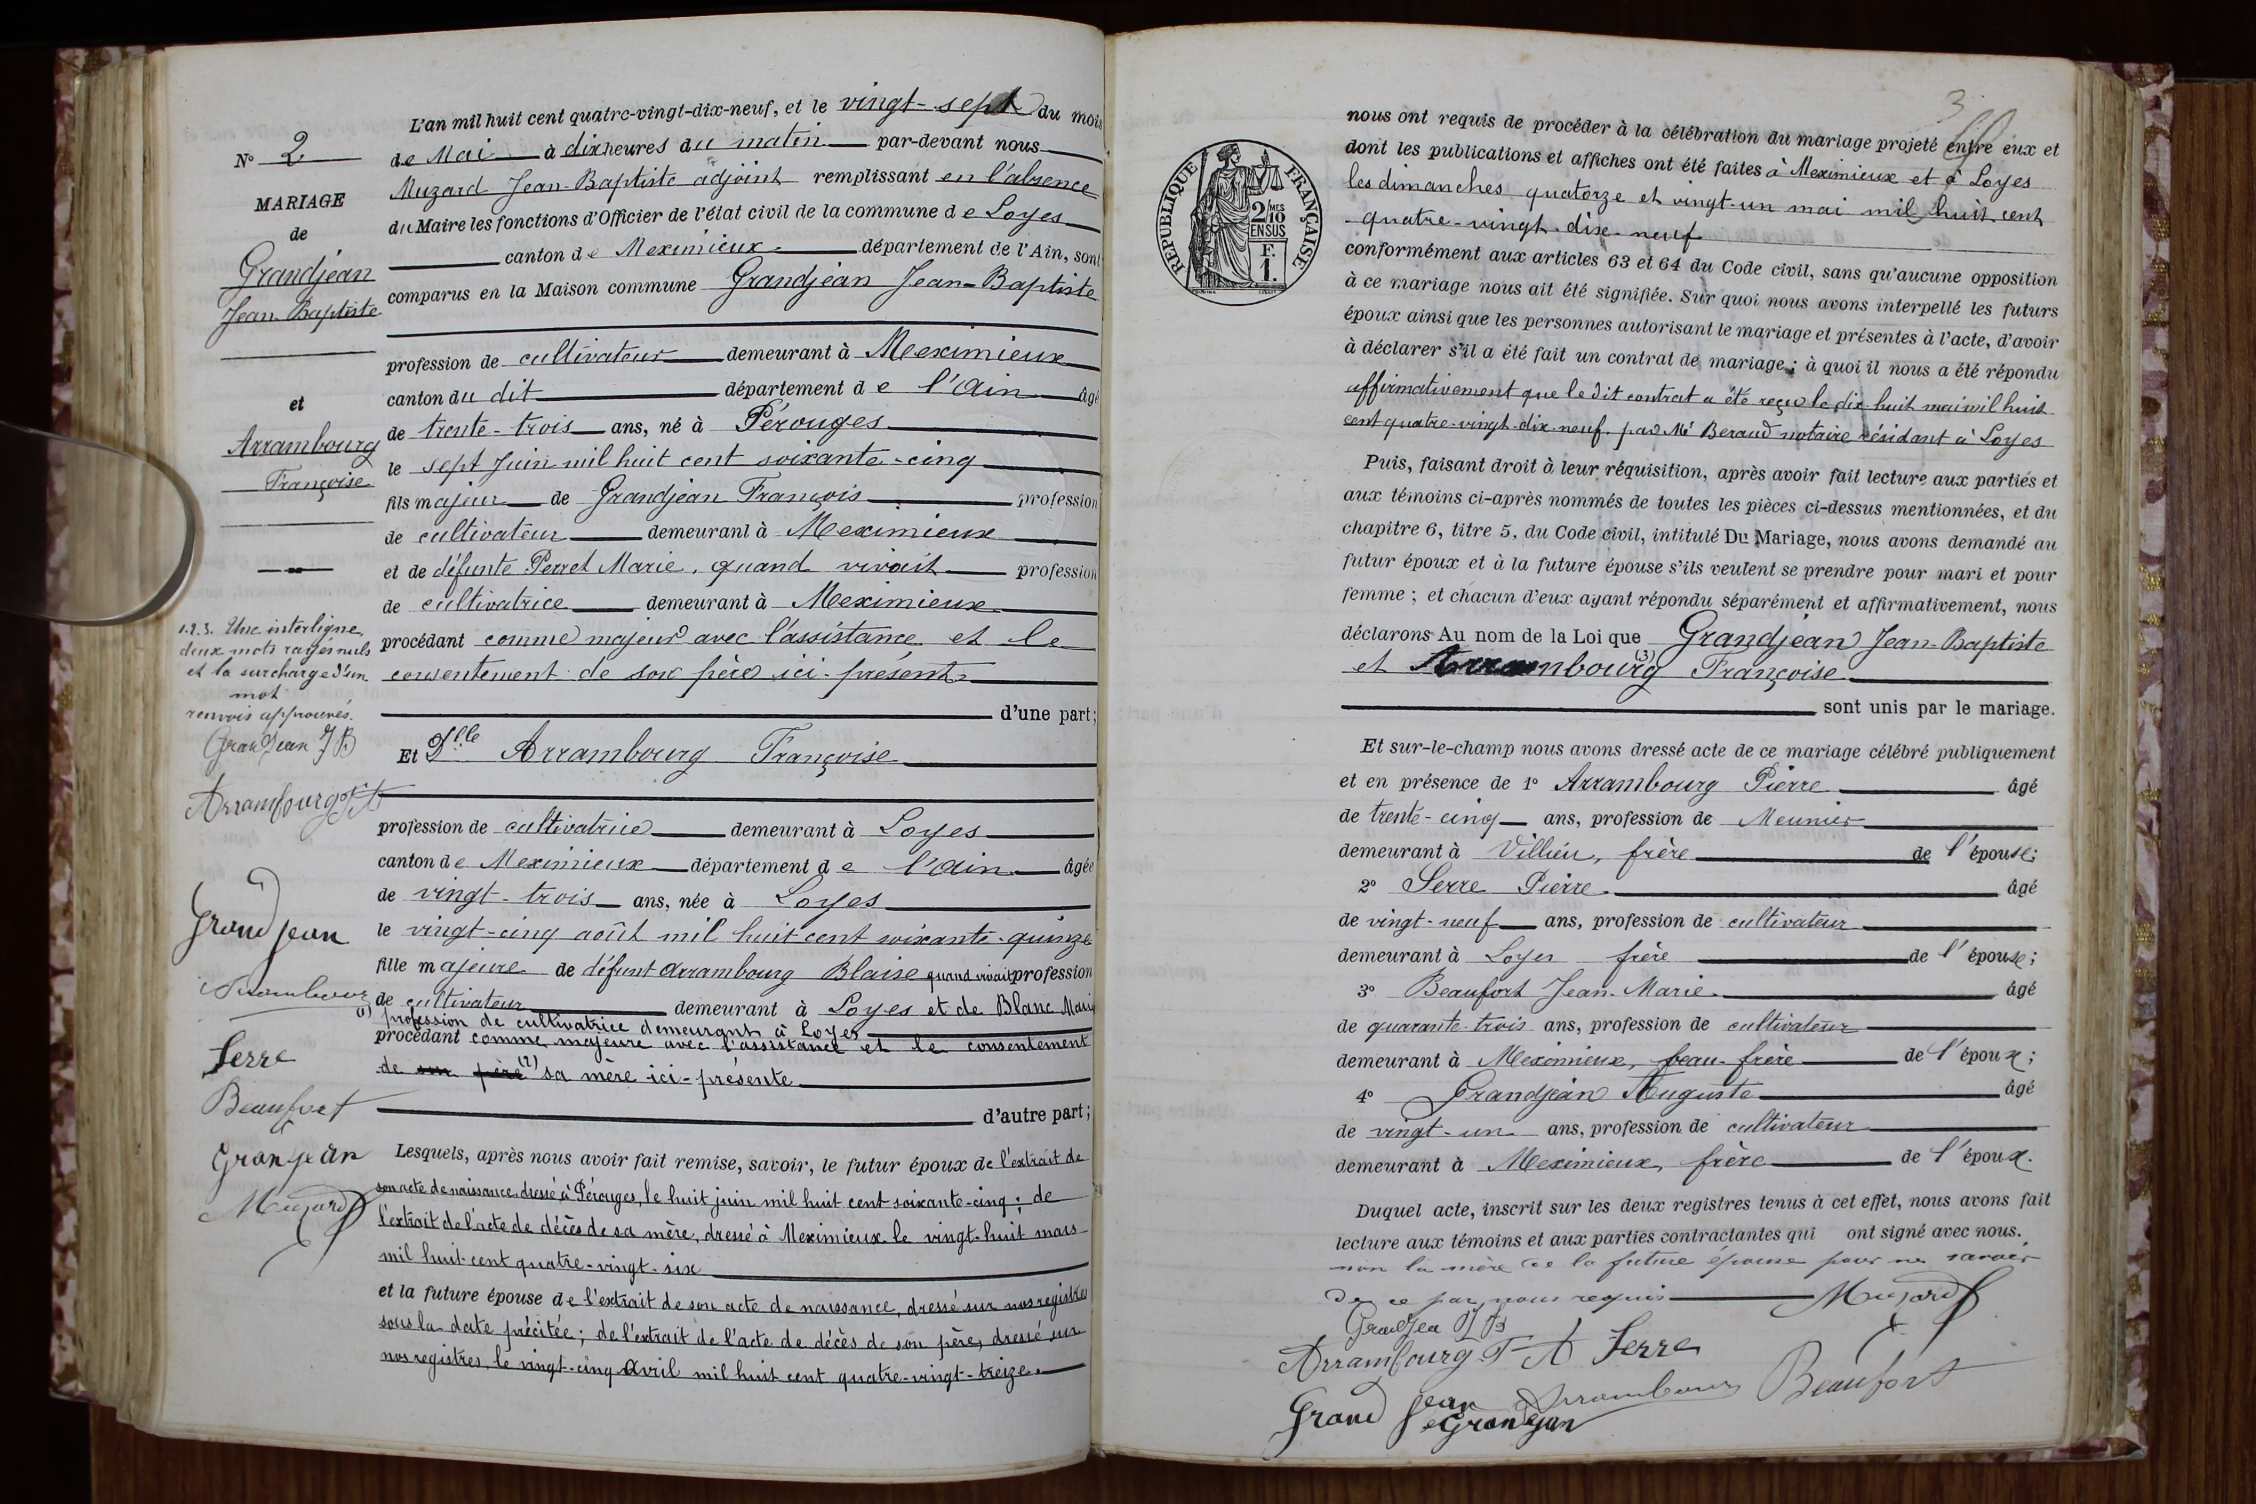 N° 2
MARIAGE
de
Grandjean
Jean-Baptiste
et
Arrambourg
Françoise
1.2.3. Une interligne,
deux mots rayés nuls
et la surcharge d'un
mot
renvois approuvés.
GranJean J B
Arrambourg F A
Grand jean
Arrambour
Serre
Beaufort
Granjean
Muzard
L'an mil huit cent quatre-vingt-dix-neuf, et le vingt-sept du mois
de Mai à dix heures du matin par-devant nous
Muzard Jean-Baptiste adjoint remplissant en l'absence
du Maire les fonctions d'Officier de l'état civil de la commune de Loyes
canton de Meximieux département de l'Ain, sont
comparus en la Maison commune Grandjean Jean-Baptiste
profession de cultivateur demeurant à Meximieux
canton du dit département de l'Ain âgé
de trente-trois ans, né à Pérouges
le sept Juin mil huit cent soixante-cinq
fils majeur de Grandjean François profession
de cultivateur demeurant à Meximieux
et de défunte Perret Marie, quand vivait profession
de cultivatrice demeurant à Meximieux
procédant comme majeur avec l'assistance et le
consentement de son père ici-présent
d'une part;
Et Dlle Arrambourg Françoise
profession de cultivatrice demeurant à Loyes
canton de Meximieux département de l'Ain âgée
de vingt-trois ans, née à Loyes
le vingt-cinq août mil huit cent soixante-quinze
fille majeure de défunt Arrambourg Blaise quand vivait profession
de cultivateur demeurant à Loyes et de Blanc Marie
(1) profession de cultivatrice demeurant à Loyes
procédant comme majeure avec l'assistance et le consentement
de son père (2) sa mère ici-présente
d'autre part;
Lesquels, après nous avoir fait remise, savoir, le futur époux de l'extrait de
son acte de naissance, dressé à Pérouges, le huit juin mil huit cent soixante-cinq; de
l'extrait de l'acte de décès de sa mère, dressé à Meximieux le vingt-huit mars
mil huit cent quatre-vingt-six
et la future épouse de l'extrait de son acte de naissance, dressé sur nos registres
sous la date précitée; de l'extrait de l'acte de décès de son père, dressé sur
nos registres, le vingt-cinq avril mil huit cent quatre-vingt-treize.
3
RÉPUBLIQUE FRANÇAISE
2 MES
10
EN SUS
F.
1.
nous ont requis de procéder à la célébration du mariage projeté entre eux et
dont les publications et affiches ont été faites à Meximieux et à Loyes
les dimanches quatorze et vingt-un mai mil huit cent
quatre-vingt-dix-neuf
conformément aux articles 63 et 64 du Code civil, sans qu'aucune opposition
à ce mariage nous ait été signifiée. Sur quoi nous avons interpellé les futurs
époux ainsi que les personnes autorisant le mariage et présentes à l'acte, d'avoir
à déclarer s'il a été fait un contrat de mariage; à quoi il nous a été répondu
affirmativement que le dit contrat a été reçu le dix-huit mai mil huit
cent quatre-vingt-dix-neuf par Me Beraud notaire résidant à Loyes
Puis, faisant droit à leur réquisition, après avoir fait lecture aux parties et
aux témoins ci-après nommés de toutes les pièces ci-dessus mentionnées, et du
chapitre 6, titre 5, du Code civil, intitulé Du Mariage, nous avons demandé au
futur époux et à la future épouse s'ils veulent se prendre pour mari et pour
femme; et chacun d'eux ayant répondu séparément et affirmativement, nous
déclarons Au nom de la Loi que Grandjean Jean-Baptiste
et Arrambourg (3) Françoise
sont unis par le mariage.
Et sur-le-champ nous avons dressé acte de ce mariage célébré publiquement
et en présence de 1° Arrambourg Pierre âgé
de trente-cinq ans, profession de Meunier
demeurant à Villieu, frère de l'épouse;
2° Serre Pierre âgé
de vingt-neuf ans, profession de cultivateur
demeurant à Loyes frère de l'épouse;
3° Beaufort Jean-Marie âgé
de quarante-trois ans, profession de cultivateur
demeurant à Meximieux, beau-frère de l'époux;
4° Grandjean Auguste âgé
de vingt-un ans, profession de cultivateur
demeurant à Meximieux, frère de l'époux.
Duquel acte, inscrit sur les deux registres tenus à cet effet, nous avons fait
lecture aux témoins et aux parties contractantes qui ont signé avec nous.
non la mère de la future épouse pour ne savoir
de ce par nous requis Muzard
GranJea J B
Arrambourg F A Serre
Grand jean Arrambour Beaufort
Granjean